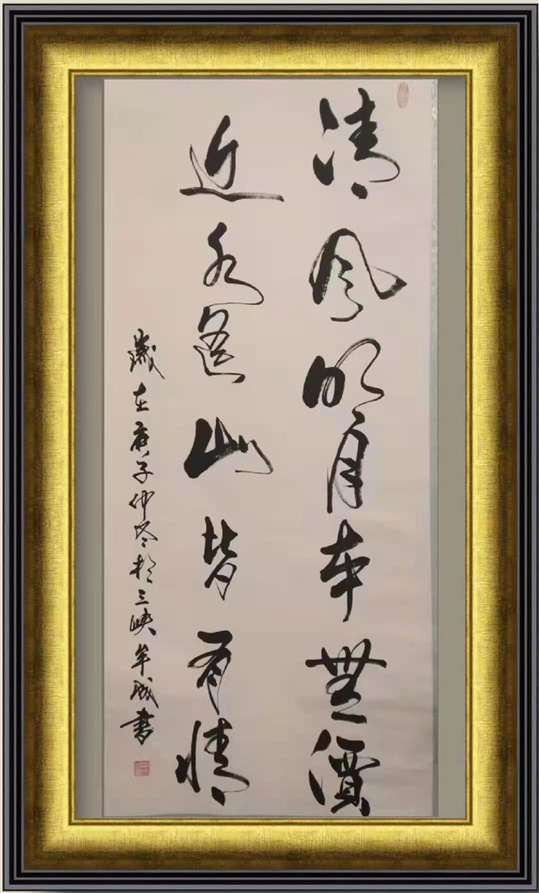 清风明月本無價
近水遥山皆有情
歲在庚子仲冬於三峡牟成書